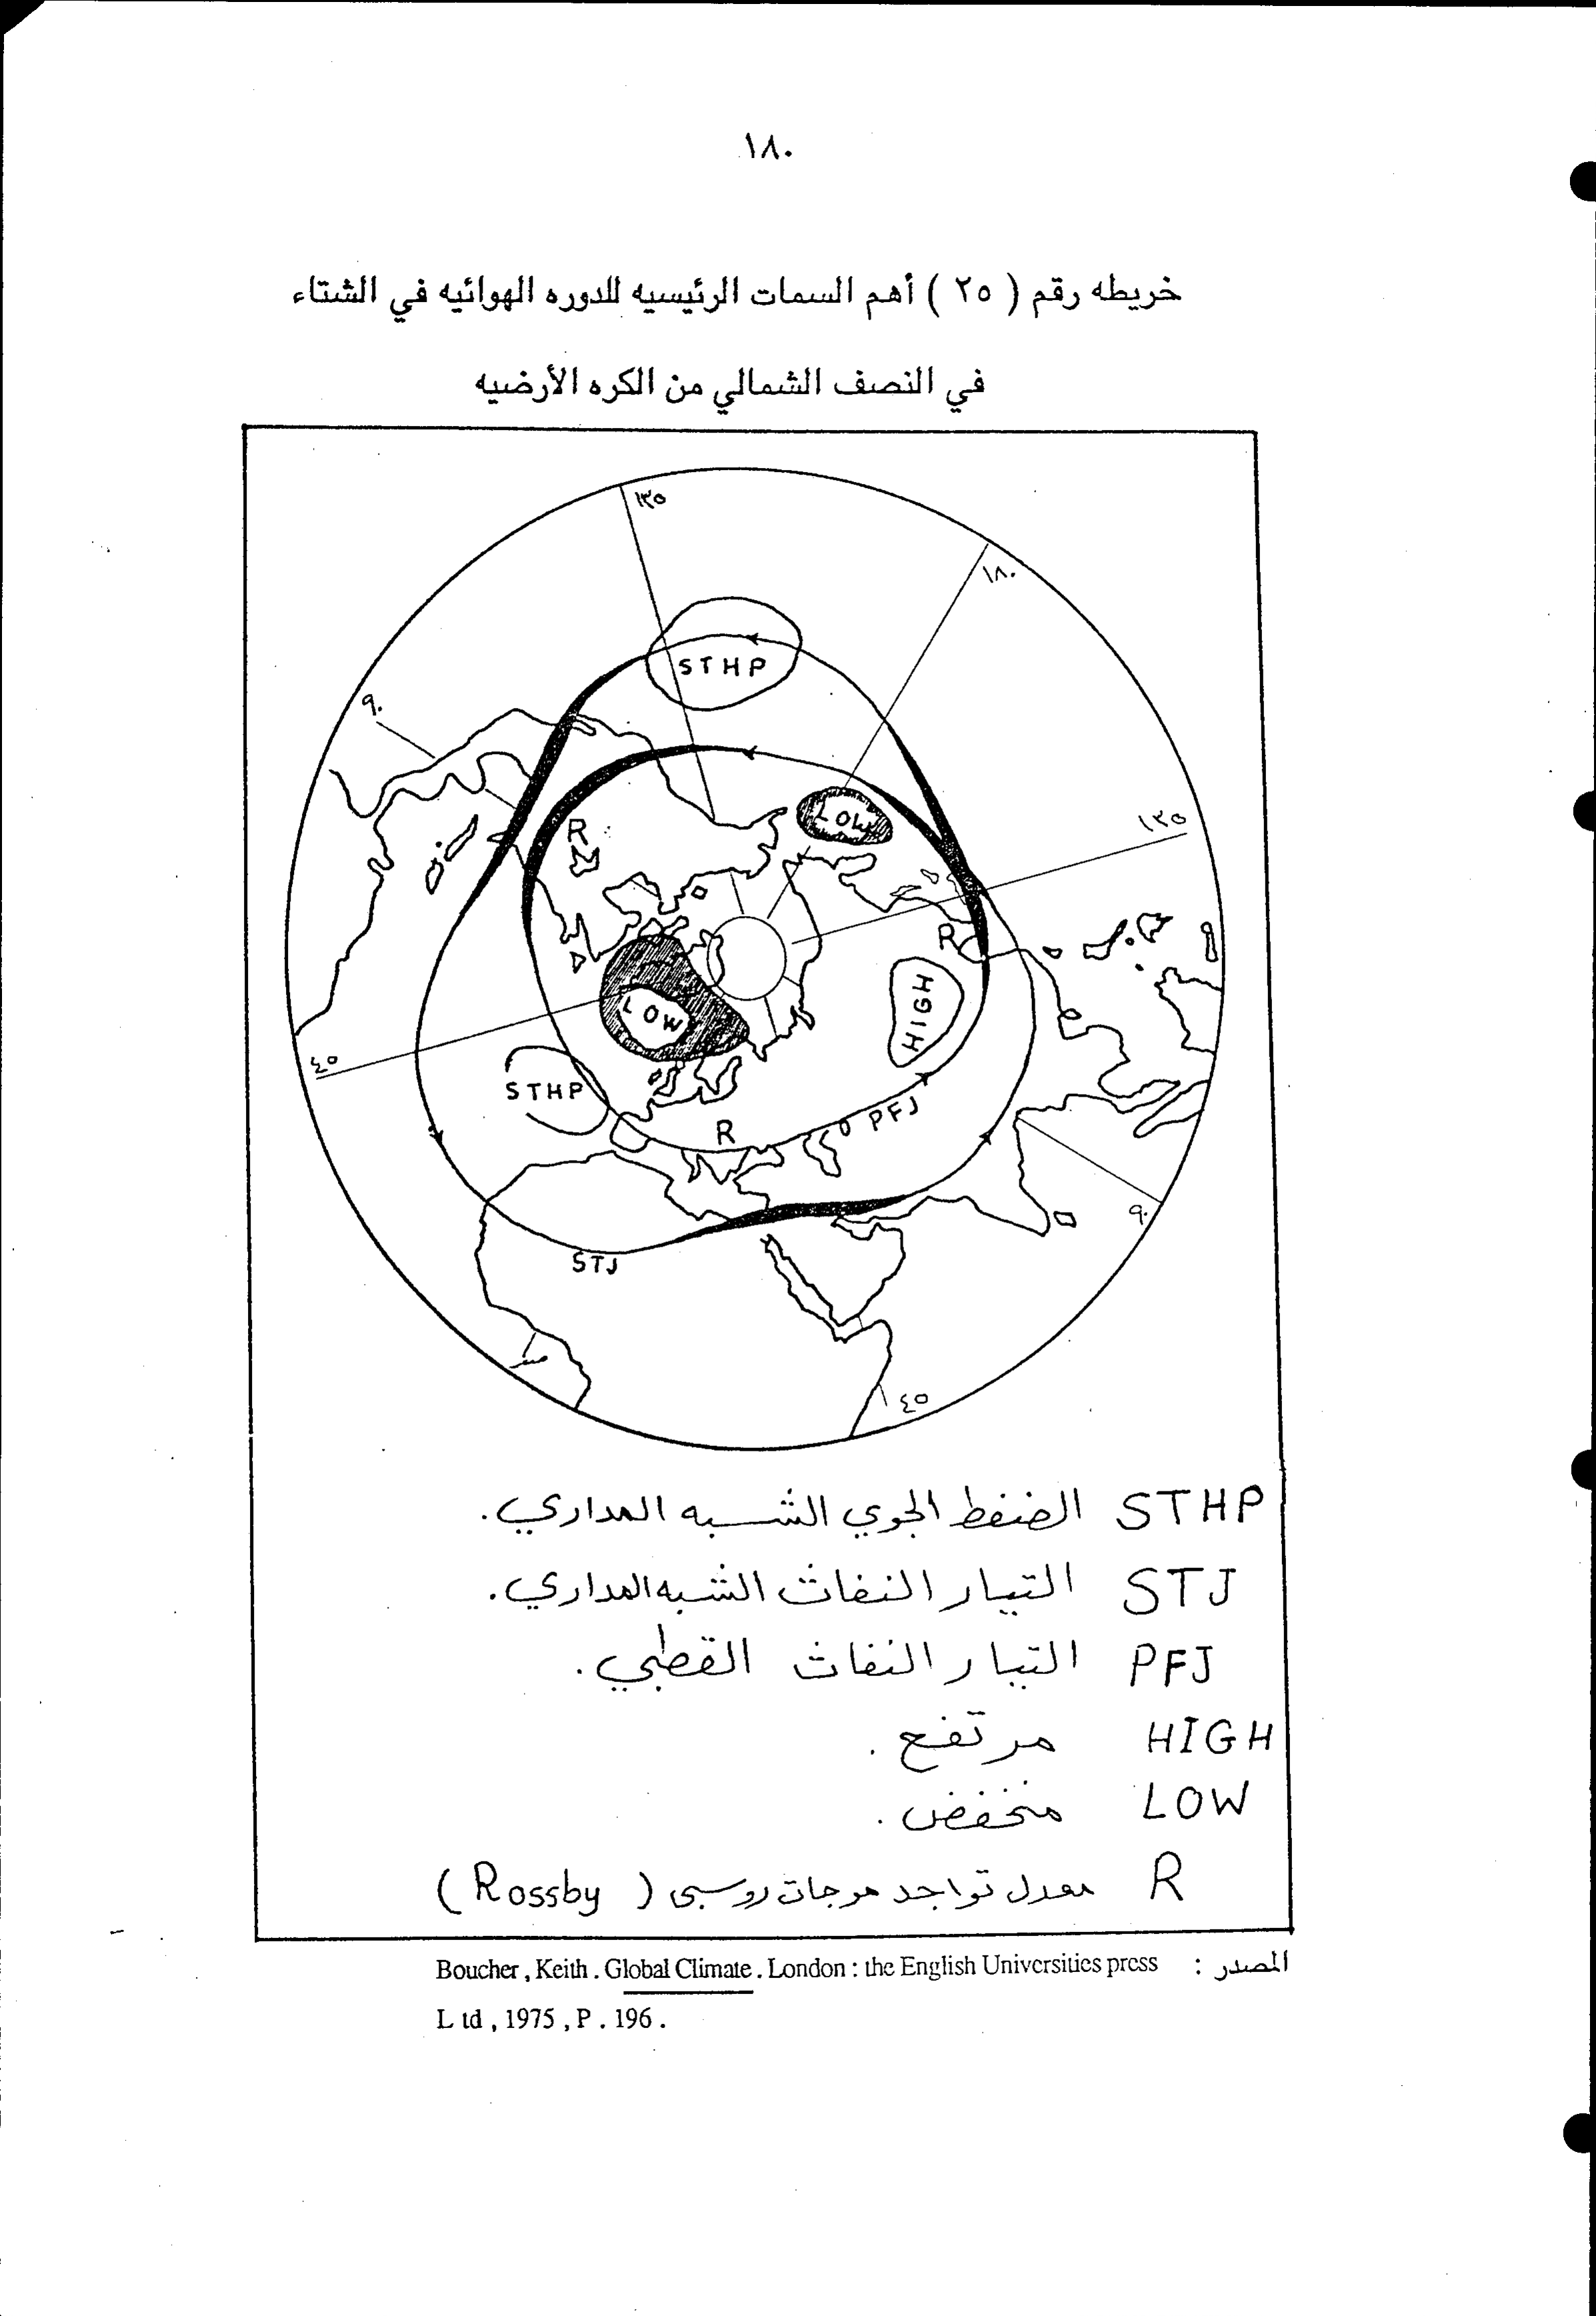 ١٨٠
خريطه رقم ( ٢٥ ) أهم السمات الرئيسيه للدوره الهوائيه في الشتاء
في النصف الشمالي من الكره الأرضيه
١٣٥
١٨٠
STHP
٩٠
١٣٥
LOW
R
R
HIGH
LOW
٤٥
STHP
R
PFJ
٩٠
STJ
٤٥
STHP الضغط الجوي الشبه المداري.
STJ التيار النفاث الشبه المداري.
PFJ التيار النفاث القطبي.
HIGH مرتفع.
LOW منخفض.
R معدل تواجد موجات روسبى ( Rossby )
المصدر : Boucher , Keith . Global Climate . London : the English Universities press
L td , 1975 , P . 196 .